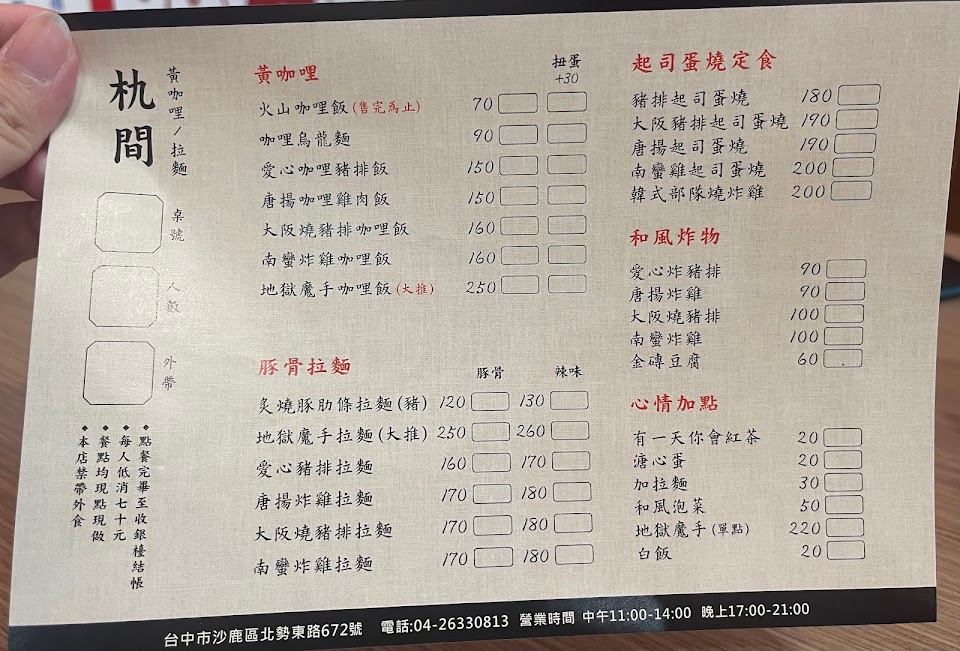 黃咖哩/拉麵
杋間
桌號
人數
外帶
◆點餐完畢至收銀檯結帳
◆每人低消七十元
◆餐點均現點現做
◆本店禁帶外食
黃咖哩 扭蛋+30
火山咖哩飯(售完為止) 70
咖哩烏龍麵 90
愛心咖哩豬排飯 150
唐揚咖哩雞肉飯 150
大阪燒豬排咖哩飯 160
南蠻炸雞咖哩飯 160
地獄魔手咖哩飯(大推) 250
豚骨拉麵 豚骨 辣味
炙燒豚肋條拉麵(豬) 120 130
地獄魔手拉麵(大推) 250 260
愛心豬排拉麵 160 170
唐揚炸雞拉麵 170 180
大阪燒豬排拉麵 170 180
南蠻炸雞拉麵 170 180
起司蛋燒定食
豬排起司蛋燒 180
大阪豬排起司蛋燒 190
唐揚起司蛋燒 190
南蠻雞起司蛋燒 200
韓式部隊燒炸雞 200
和風炸物
愛心炸豬排 90
唐揚炸雞 90
大阪燒豬排 100
南蠻炸雞 100
金磚豆腐 60
心情加點
有一天你會紅茶 20
溏心蛋 20
加拉麵 30
和風泡菜 50
地獄魔手(單點) 220
白飯 20
台中市沙鹿區北勢東路672號 電話:04-26330813 營業時間 中午11:00-14:00 晚上17:00-21:00